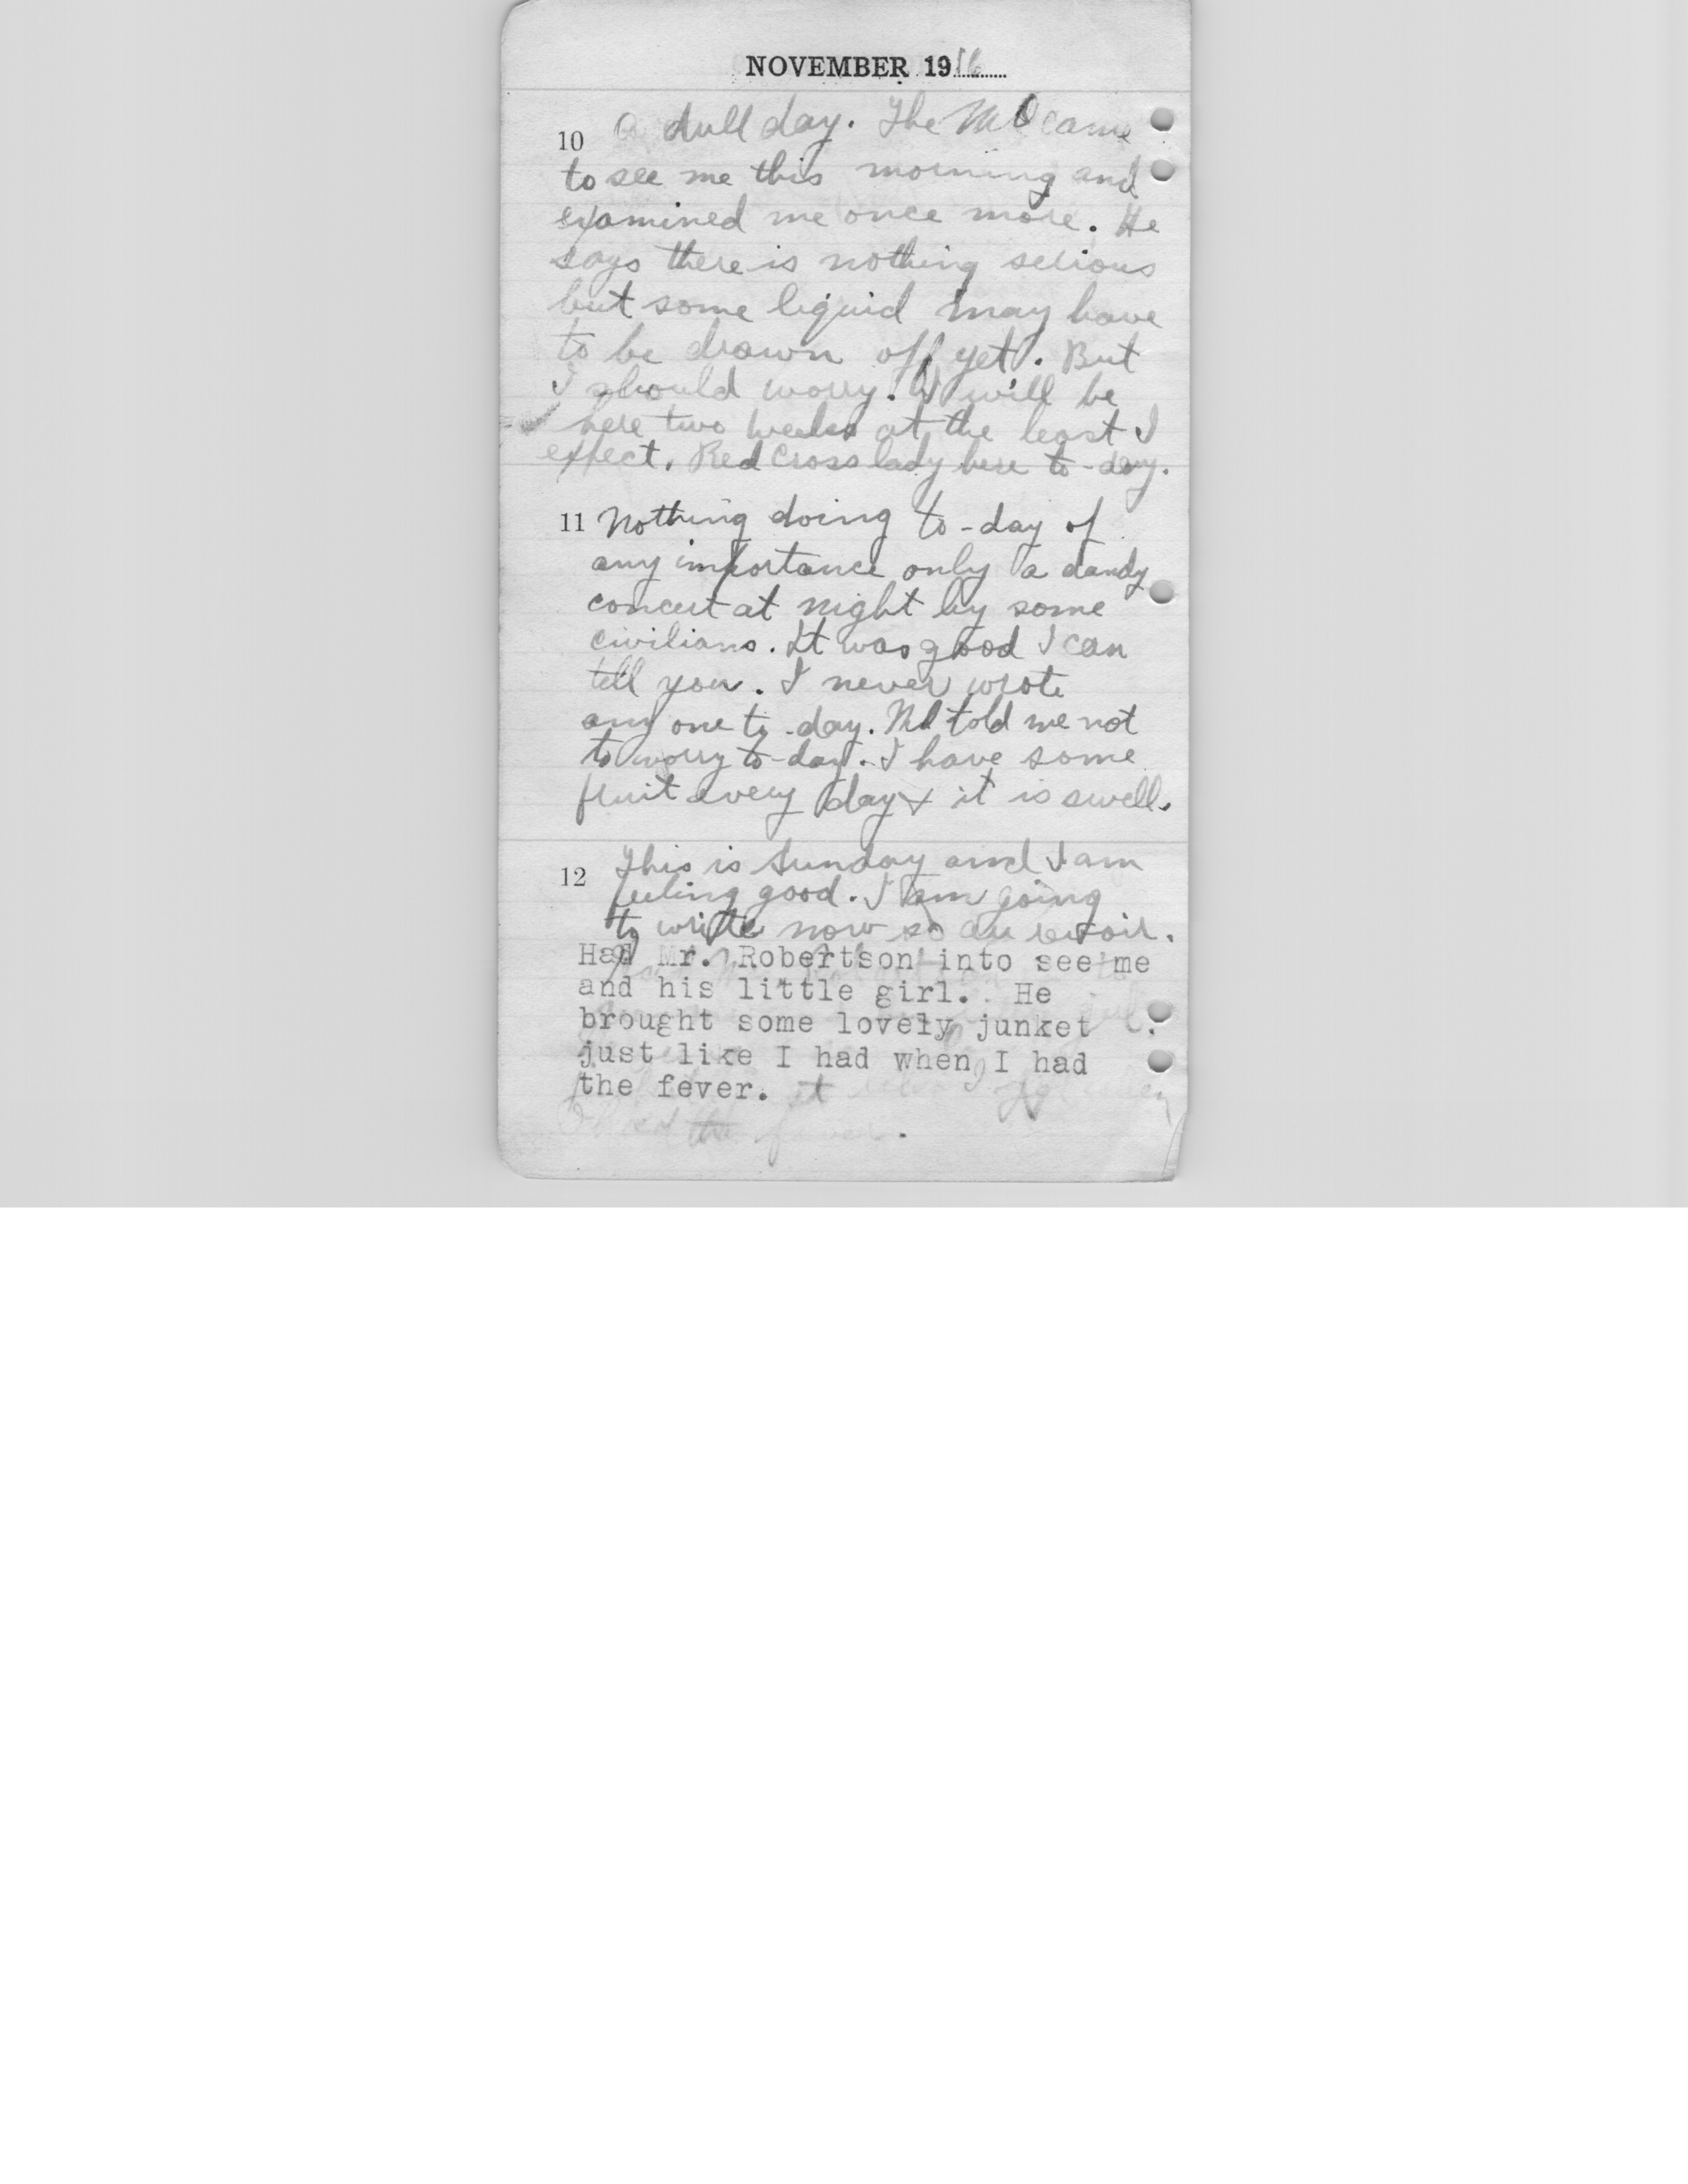 NOVEMBER 1916
10 A dull day. The MO came
to see me this morning and
examined me once more. He
says there is nothing serious
but some liquid may have
to be drawn off yet. But
I should worry. I will be
here two weeks at the least I
expect. Red Cross lady here to-day.
11 Nothing doing to-day of
any importance only a dandy
concert at night by some
civilians. It was good I can
tell you. I never wrote
any one to-day. MO told me not
to worry to-day. I have some
fruit every day & it is swell.
12 This is Sunday and I am
feeling good. I am going
to write now so au revoir.
Had Mr. Robertson into see me
and his little girl. He
brought some lovely junket
just like I had when I had
the fever.
had the fever.